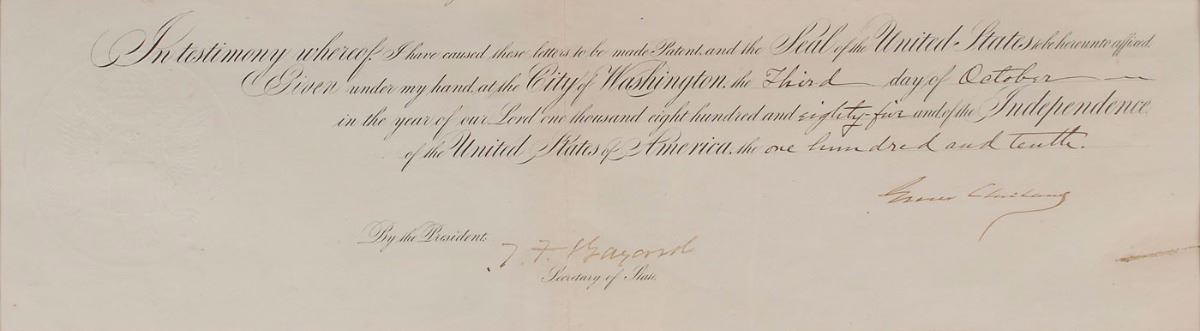 In testimony whereof, I have caused these letters to be made Patent, and the Seal of the United States to be hereunto affixed.
Given under my hand, at the City of Washington, the Third day of October
in the year of our Lord one thousand eight hundred and eighty-five and of the Independence
of the United States of America, the one hundred and tenth.
Grover Cleveland
By the President,
T. F. Bayard
Secretary of State.